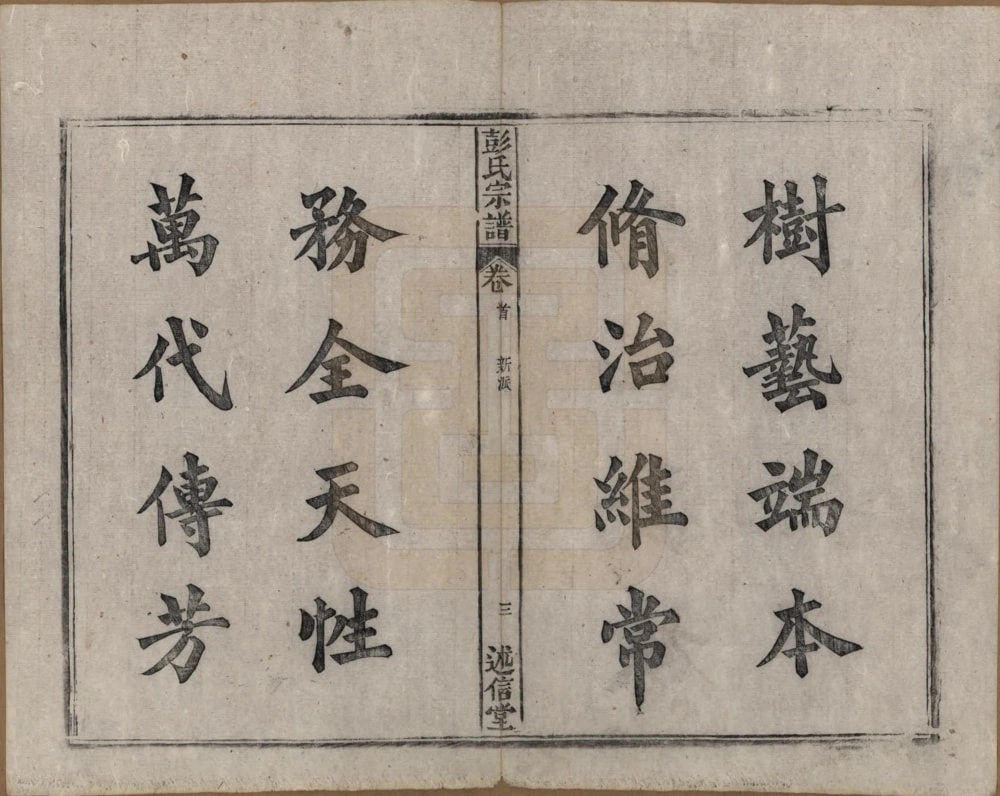 樹藝端本
脩治維常
彭氏宗譜
卷首
新派
三
述信堂
務全天性
萬代傳芳